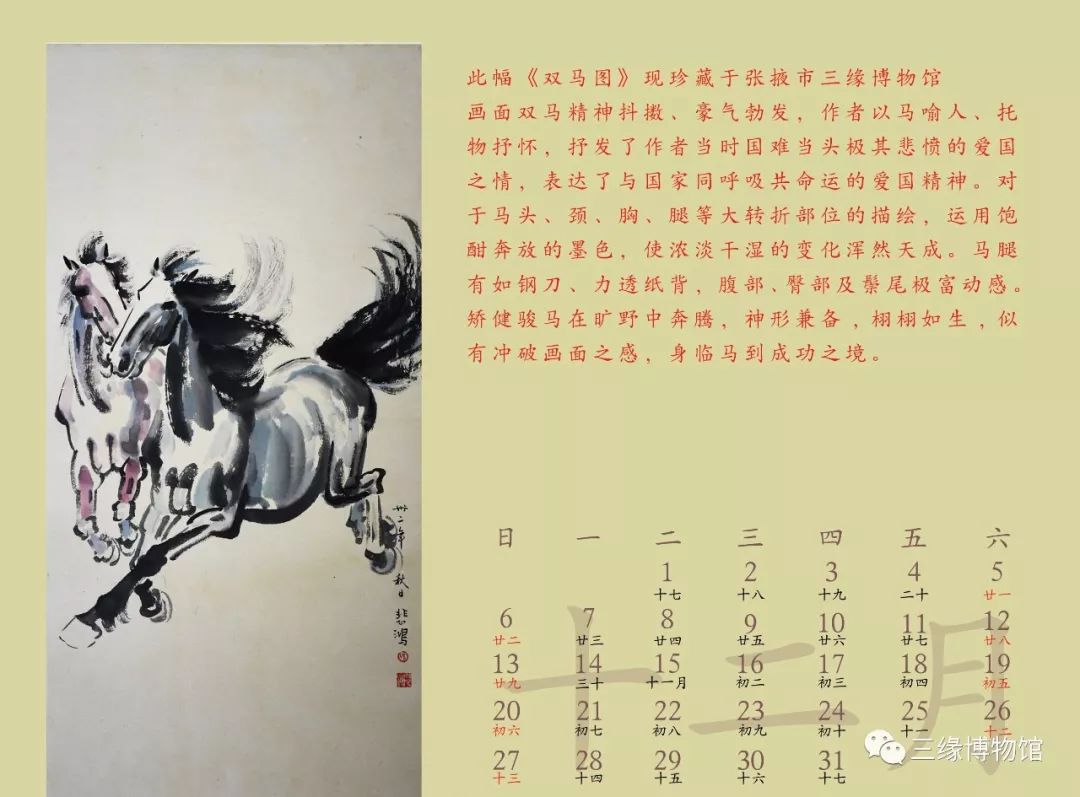 此幅《双马图》现珍藏于张掖市三缘博物馆
画面双马精神抖擞、豪气勃发，作者以马喻人、托
物抒怀，抒发了作者当时国难当头极其悲愤的爱国
之情，表达了与国家同呼吸共命运的爱国精神。对
于马头、颈、胸、腿等大转折部位的描绘，运用饱
酣奔放的墨色，使浓淡干湿的变化浑然天成。马腿
有如钢刀、力透纸背，腹部、臀部及鬃尾极富动感。
矫健骏马在旷野中奔腾，神形兼备，栩栩如生，似
有冲破画面之感，身临马到成功之境。
卅二年秋日
悲鸿
日 一 二 三 四 五 六
1 2 3 4 5
十七 十八 十九 二十 廿一
6 7 8 9 10 11 12
廿二 廿三 廿四 廿五 廿六 廿七 廿八
13 14 15 16 17 18 19
廿九 三十 十一月 初二 初三 初四 初五
20 21 22 23 24 25 26
初六 初七 初八 初九 初十 十一 十二
27 28 29 30 31
十三 十四 十五 十六 十七
十二月
三缘博物馆